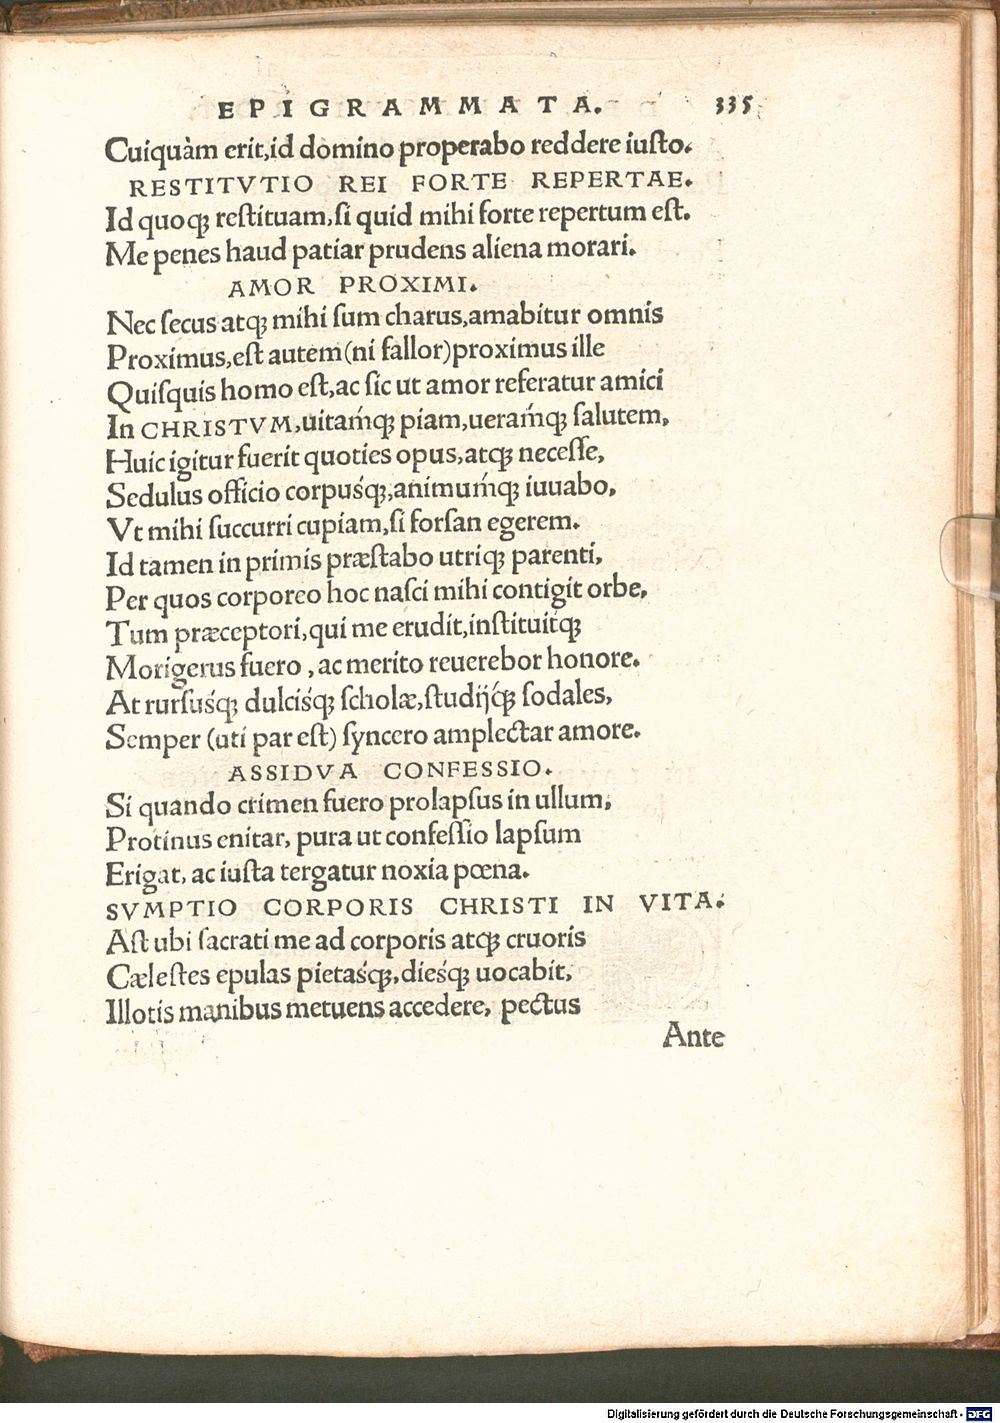 EPIGRAMMATA. 335
Cuiquàm erit,id domino properabo reddere iusto.
RESTITVTIO REI FORTE REPERTAE.
Id quoqꝫ restituam,si quid mihi forte repertum est.
Me penes haud patiar prudens aliena morari.
AMOR PROXIMI.
Nec secus atqꝫ mihi sum charus,amabitur omnis
Proximus,est autem(ni fallor)proximus ille
Quisquis homo est,ac sic ut amor referatur amici
In CHRISTVM,uitaḿqꝫ piam,ueraḿqꝫ salutem,
Huic igitur fuerit quoties opus,atqꝫ necesse,
Sedulus officio corpuśqꝫ,animuḿqꝫ iuuabo,
Vt mihi succurri cupiam,si forsan egerem.
Id tamen in primis præstabo utriqꝫ parenti,
Per quos corporeo hoc nasci mihi contigit orbe,
Tum præceptori,qui me erudit,instituitqꝫ
Morigerus fuero , ac merito reuerebor honore.
At rursuśqꝫ dulciśqꝫ scholæ,studij́qꝫ sodales,
Semper (uti par est) syncero amplectar amore.
ASSIDVA CONFESSIO.
Si quando crimen fuero prolapsus in ullum,
Protinus enitar, pura ut confessio lapsum
Erigat, ac iusta tergatur noxia pœna.
SVMPTIO CORPORIS CHRISTI IN VITA.
Ast ubi sacrati me ad corporis atqꝫ cruoris
Cælestes epulas pietaśqꝫ,dieśqꝫ uocabit,
Illotis manibus metuens accedere, pectus
Ante
Digitalisierung gefördert durch die Deutsche Forschungsgemeinschaft - DFG